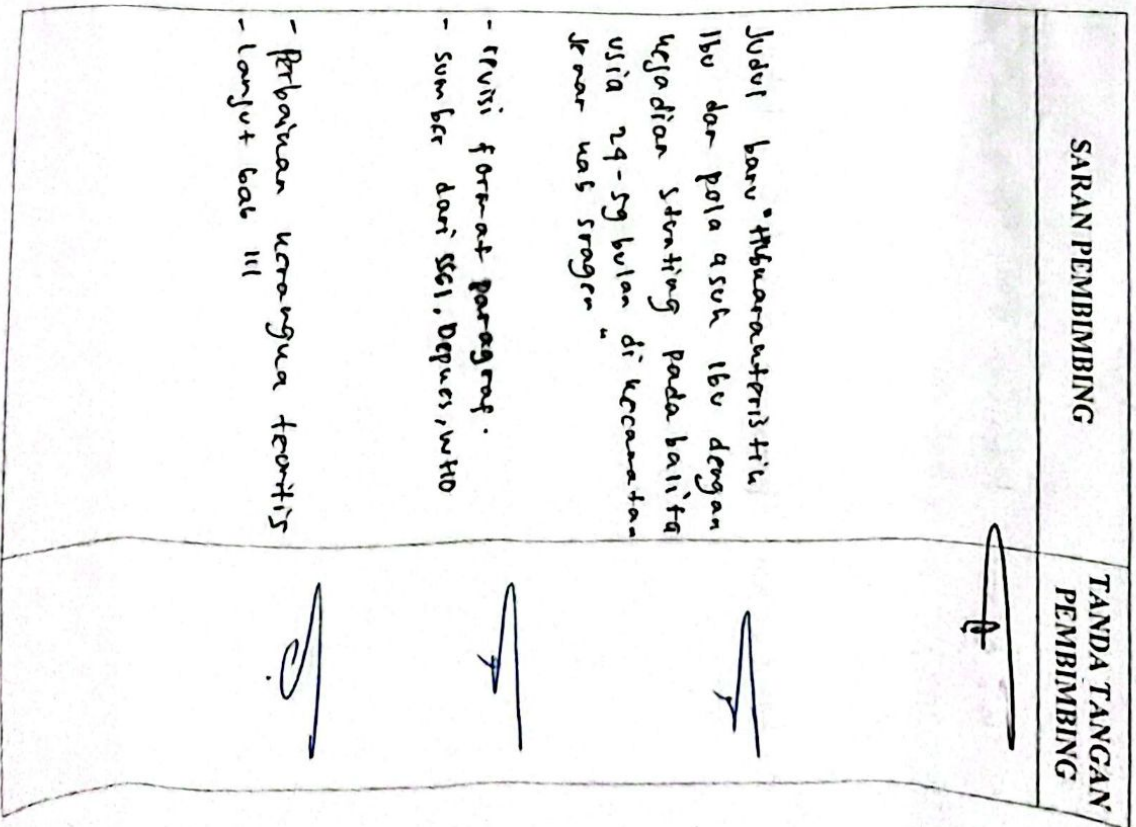 SARAN PEMBIMBING
TANDA TANGAN
PEMBIMBING
Judul baru "Hub karakteristik
Ibu dan pola asuh Ibu dengan
kejadian stunting pada balita
usia 24-59 bulan di kecamatan
kab sragen "
- revisi format paragraf.
- sumber dari SSGI, Depkes, WHO
- Perbaikan kerangka teoritis
- Lanjut bab III